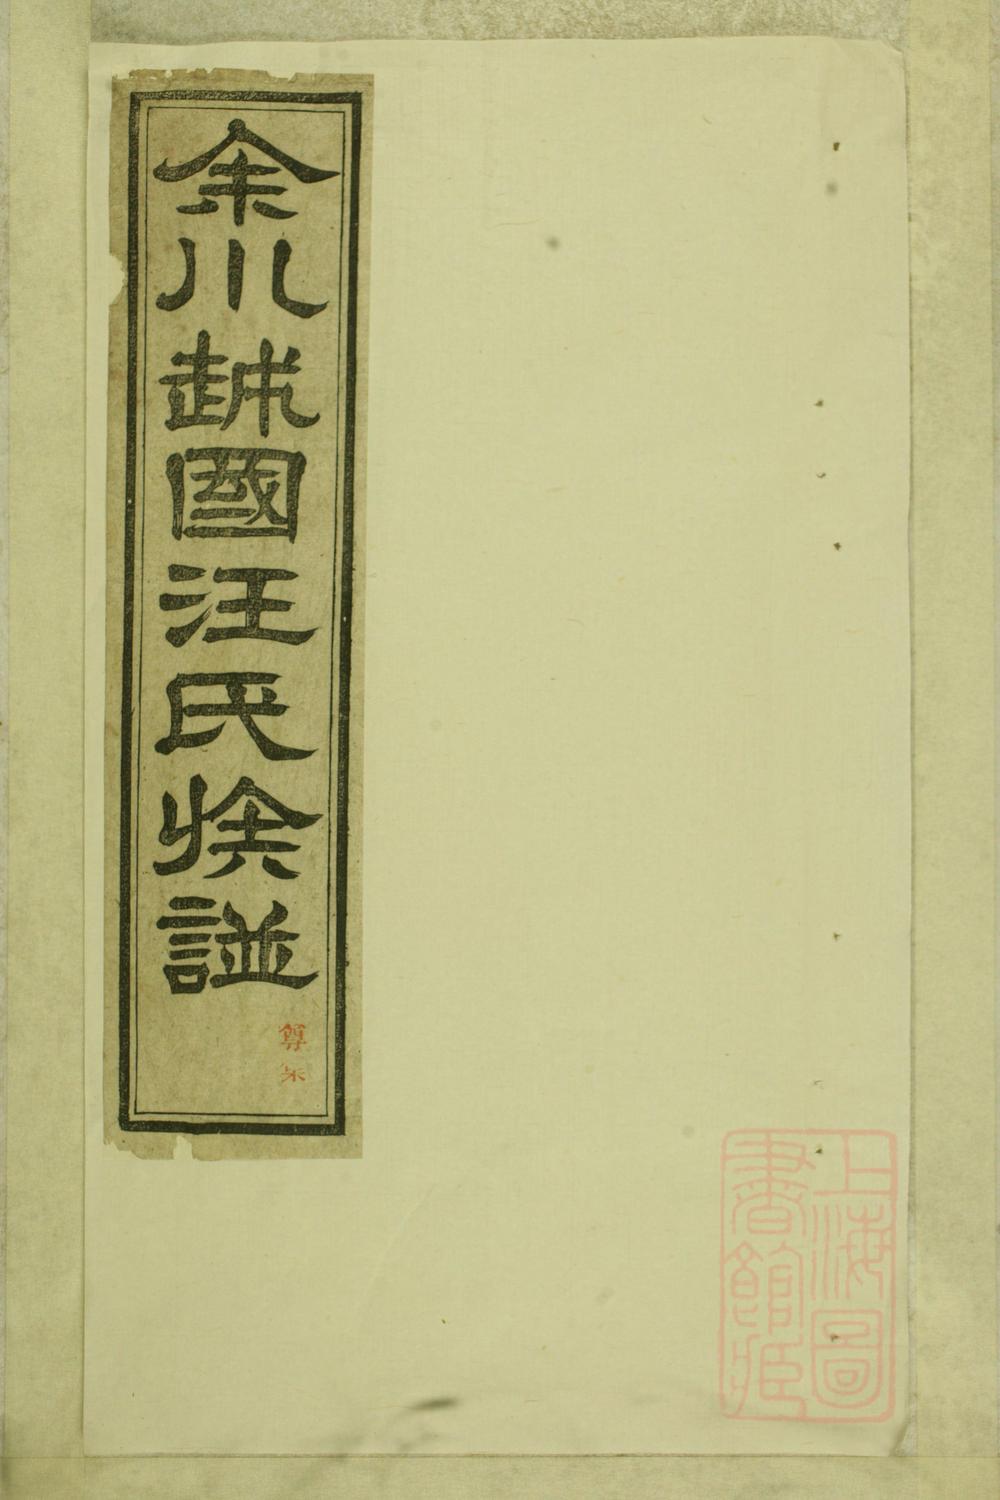 余川越國汪氏族譜
尊
上海圖
書館藏